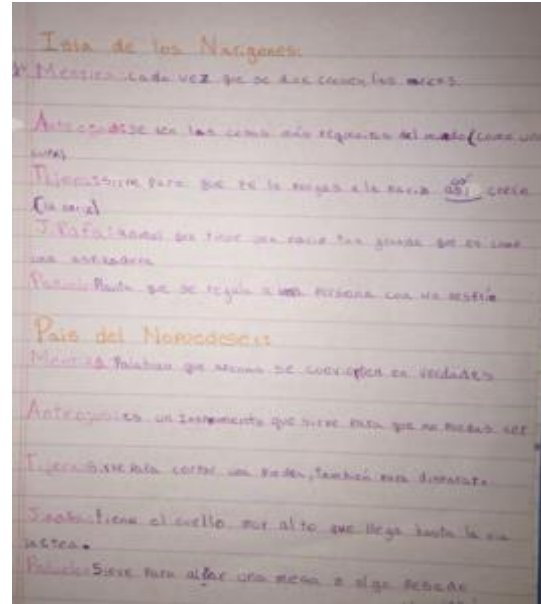 Isla de los Narigones:
Mentira: cada vez que se dice crecen las narices.
Anteojos: se ven las cosas más pequeñas del mundo (como una
Tijeras: sirve para que te la pongas a la nariz así
(la nariz)
Jirafa: animal que tiene una nariz tan grande que es como
una aspiradora
Pañuelo: Manta que se regala a una persona con un resfrío
País del Nomeacuerdo:
Mentira: Palabras que se convierten en verdades
Anteojos: es un instrumento que sirve para que no puedas ver
Tijera: Sirve para cortar, también para disparar.
Jirafa: tiene el cuello muy alto que llega hasta la vía
lactea.
Pañuelo: Sirve para alzar una mesa o algo pesado